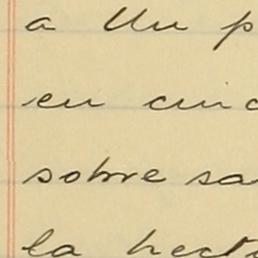 a Un p
en cinc
sobre sa
la hect